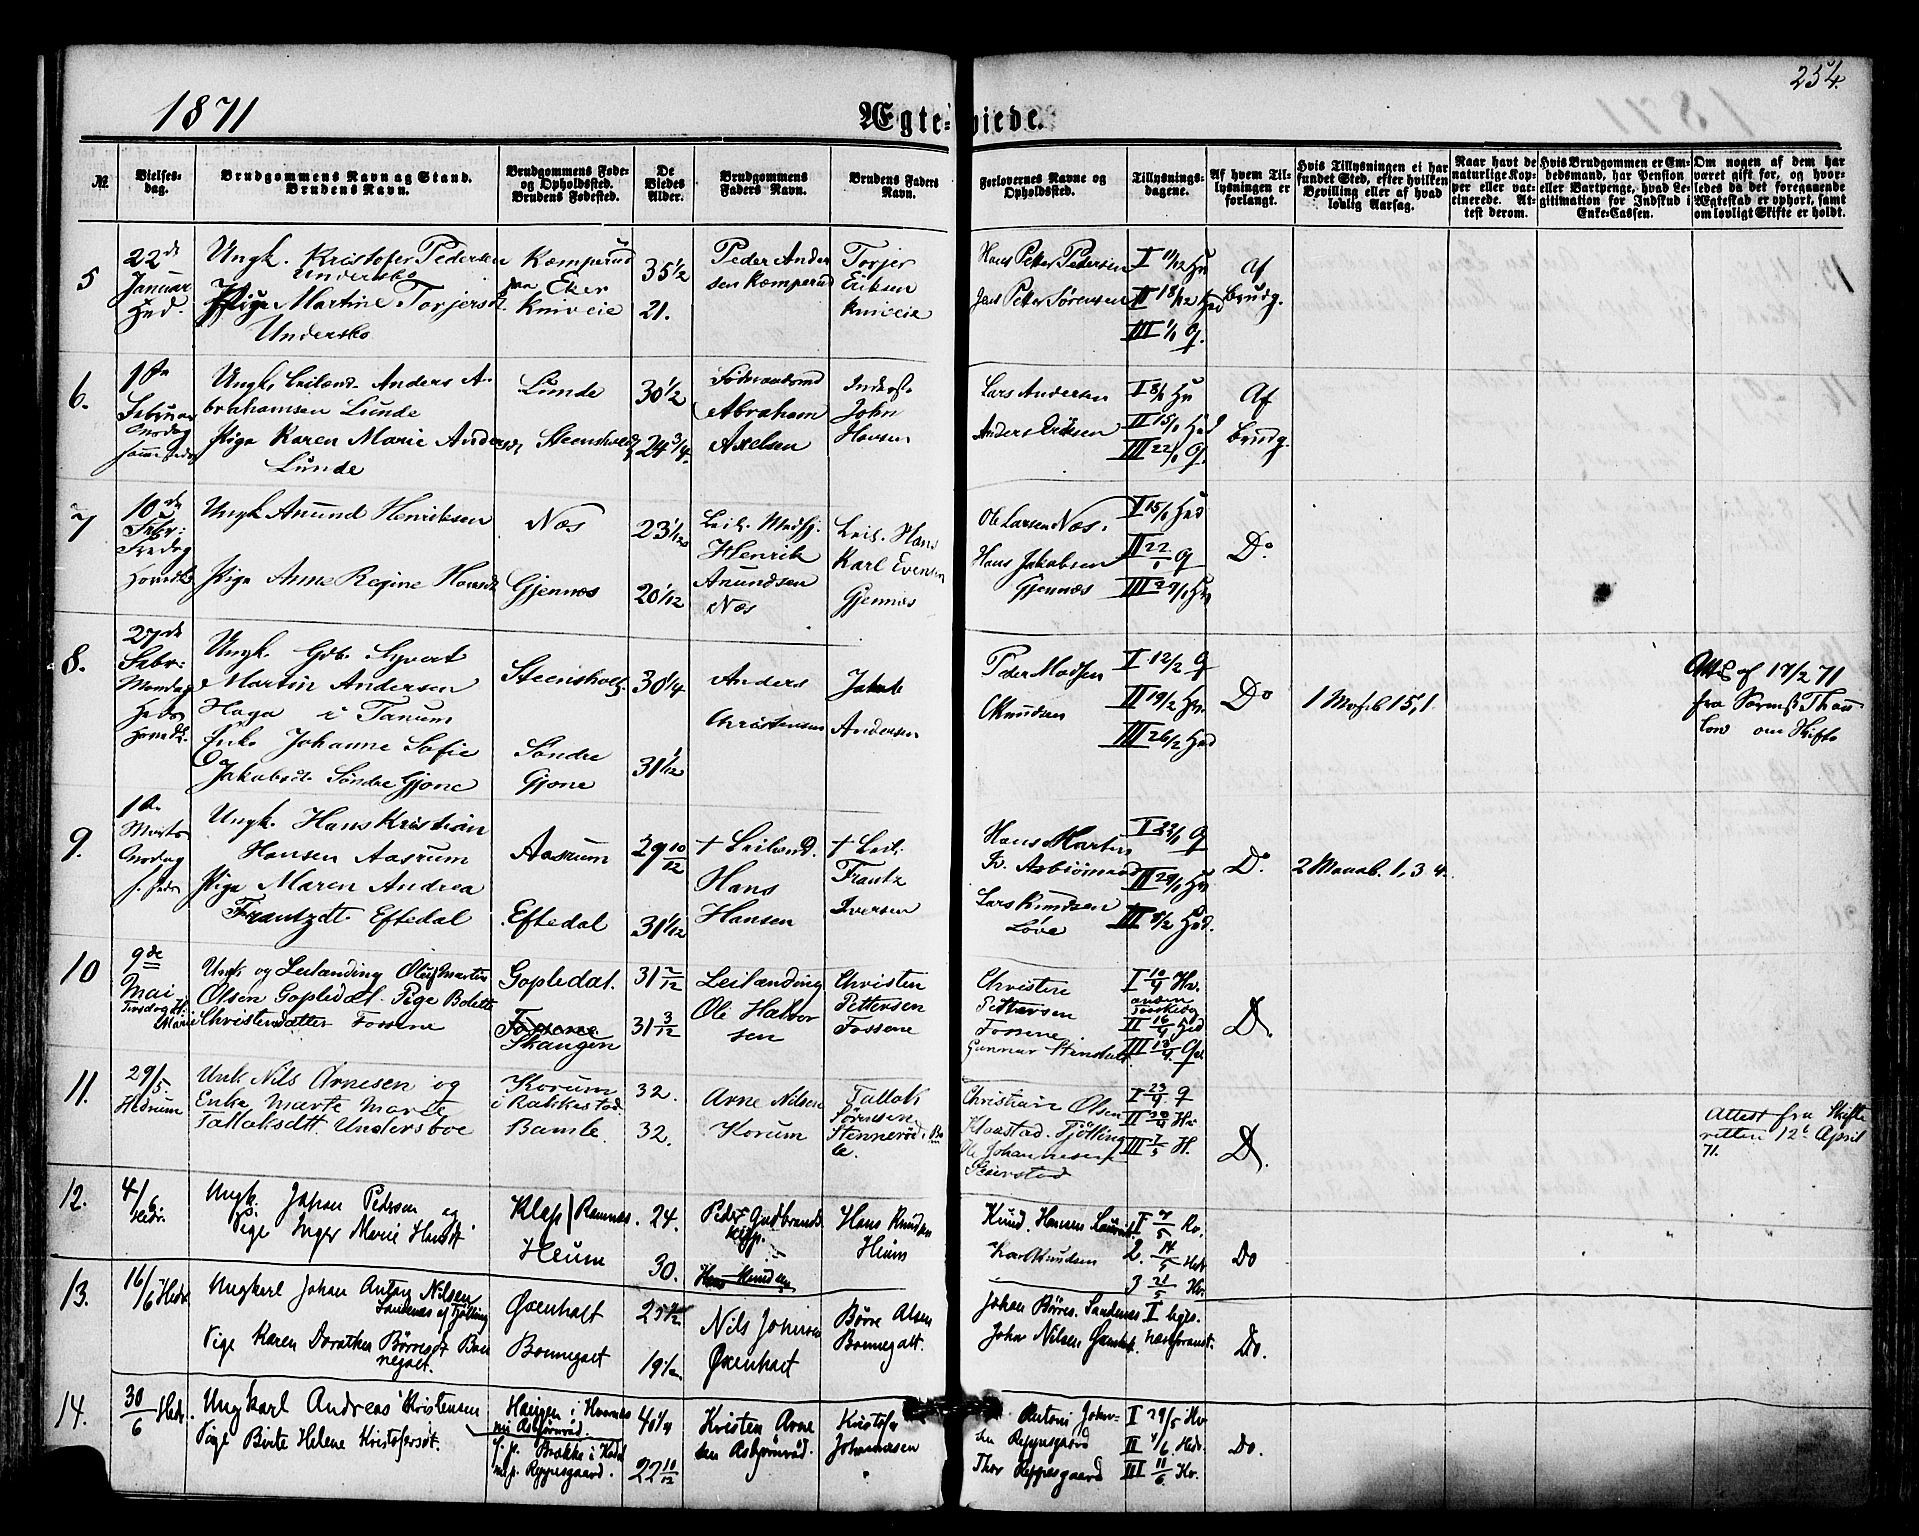 1871
Ægte-
viede.
254.
№
Vielses-
dag.
Brudgommens Navn og Stand.
Brudens Navn.
Brudgommens Føde-
og Opholdsted.
Brudens Fødested.
De
Viedes
Alder.
Brudgommens
Faders Navn.
Brudens Faders
Navn.
Forlovernes Navne og
Opholdsted.
Tillysnings-
dagene.
Af hvem Til-
lysningen er
forlangt.
Hvis Tillysningen ei har
fundet Sted, efter hvilken
Bevilling eller af hvad
lovlig Aarsag.
Naar havt de
naturlige Kop-
per eller vac-
cinerede. At-
test derom.
Hvis Brudgommen er Em-
bedsmand, har Pension
eller Vartpenge, hvad Le-
gitimation for Indskud i
Enke-Cassen.
Om nogen af dem har
været gift for, og hvor-
ledes da det foregaaende
Ægteskab er ophørt, samt
om lovligt Skifte er holdt.
5
22de
Januar
Hed.
Ungk. Kristofer Pedersen
Undersbo
Pige Martine Torjersd.
Undersbo
Kamperud
paa Eker
Kniveie
35 1/2
21.
Peder Ander
sen Kamperud
Torjer
Eriksen
Kniveie
Hans Petter Pedersen
Jens Peter Sørensen
I 11/12 Hv
II 18/12 Hed
III 1/1 Q.
Af
Brudg.
6.
1ste
Februar
Onsdag
Ungk. Leilænd. Anders A-
brahamsen Lunde
Pige Karen Marie Andersd.
Lunde
Lunde
Steensholt
30 1/2
24 3/4.
Abraham
Axelsen
Inderst.
John
Hansen
Lars Andersen
Anders Eriksen
I 8/1 Hv
II 15/1 Hed
III 22/1 Q.
Af
Brudg.
7
10de
Febr:
Fredag
Ungk. Anund Henriksen
Pige Anne Regine Hansdt.
Næs
Gjennæs
23 1/12
20 1/12
Henrik
Anundsen
Næs
Leil. Hans
Karl Evensen
Gjennæs
Ole Larsen Næs.
Hans Jakobsen
Gjennæs
I 15/1 Hed
II 22/1 Q
III 29/1 Hv
Do
8.
27de
Febr:
Mandag
Ungk. Gdb. Syvert
Martin Andersen
Haga i Tanum
Enke Johanne Sofie
Jakobsdt. Søndre Gjone
Steensholt.
Søndre
Gjone
30 1/4
31 1/12
Anders
Christensen
Jakob
Andersen
Peder Madsen
Knudsen
I 12/2 Q
II 19/2 Hv.
III 26/2 Hed
Do
Att. af 17/2 71
fra Sorensk. Thau
low om Skifte
9.
1ste
Marts
Onsdag
Ungk. Hans Kristian
Hansen Aasrum
Pige Maren Andrea
Frantzdt. Eftedal
Aasrum
Eftedal
29 10/12
31 1/12
+ Leilænd.
Hans
Hansen
+ Leil.
Frantz
Iversen
Hans Martin
Lars Knudsen
Løve
I 22/1 Q
II 29/1 Hv
III 5/2 Hed.
Do.
10
9de
Mai
Tirsdag H.
Marie
Ungk. og Leilænding Oluf Martin
Olsen Gopledal. Pige Bolette
Christensdatter Fossene
Gopledal.
Fossene
Skaugen
31 7/12
31 3/12
Leilænding
Ole Halvor
sen
Christen
Pettersen
Fossene
Christen
Pettersen
Fossene
Gunnar
I 10/4 Hv.
anden
Paaskedag
II 16/4 Hed
III
D.
11.
29/5
Hedrum
Unk. Nils Arnesen og
Enke Marte Marie
Tallaksdtt Undersboe
Korum
i Rakkestad.
Bamle
32.
32.
Arne Nilsen
Korum
Tallak
Sørensen
Stennerød. Bam
le.
Christian Olsen
Klaastad. Tjølling
Ole Johannesen
I 23/4 Q
II 30/4 Hv
III 7/5 H.
D.
Attest fra Skifte
retten 12te April
71.
12.
4/6
Hedr.
Ungk. Johan Pedersen og
Pige Inger Marie Hansdt
Klep / Ramnæs.
Heum
24.
30.
Peder Gudbrands
Klep.
Hans Knudsen
Hans Knudsen
Heum
Knud Hansen
Karl Knudsen
I 7/5 Kv.
2. 14/5 Hed
3 21/5 Hv.
Do
13.
16/6 Hedr
Ungkarl Johan Anton Nilsen
Sandenæs af Tjølling
Pige Karen Dorathea Børresdt Bon
negalt.
Øxenholt
Bonnegalt
25
19 1/2
Nils Johnsen
Øxenholt
Børre Olsen
Bonnegalt.
Johan Børres. Sandenæs
John Nilsen Øxenholt.
Do.
14.
30/6 Hedr.
Ungkarl Andreas Kristensen
Pige Berte Helene Kristofersdt.
Haugen i Hvarnes
nu Asbjørnrød.
f. p. Brække i Hedr
nu p. Reppesgaard.
40 1/4
22 10/12
Kristen Arne
sen Asbjørnrød.
Kristofer
Johannesen
Antoni Johan-
sen Reppesgaard
Thor Reppesgaard
I 29/5 Hv
II 4/6 Hedr.
III 11/6 Kv.
Do.